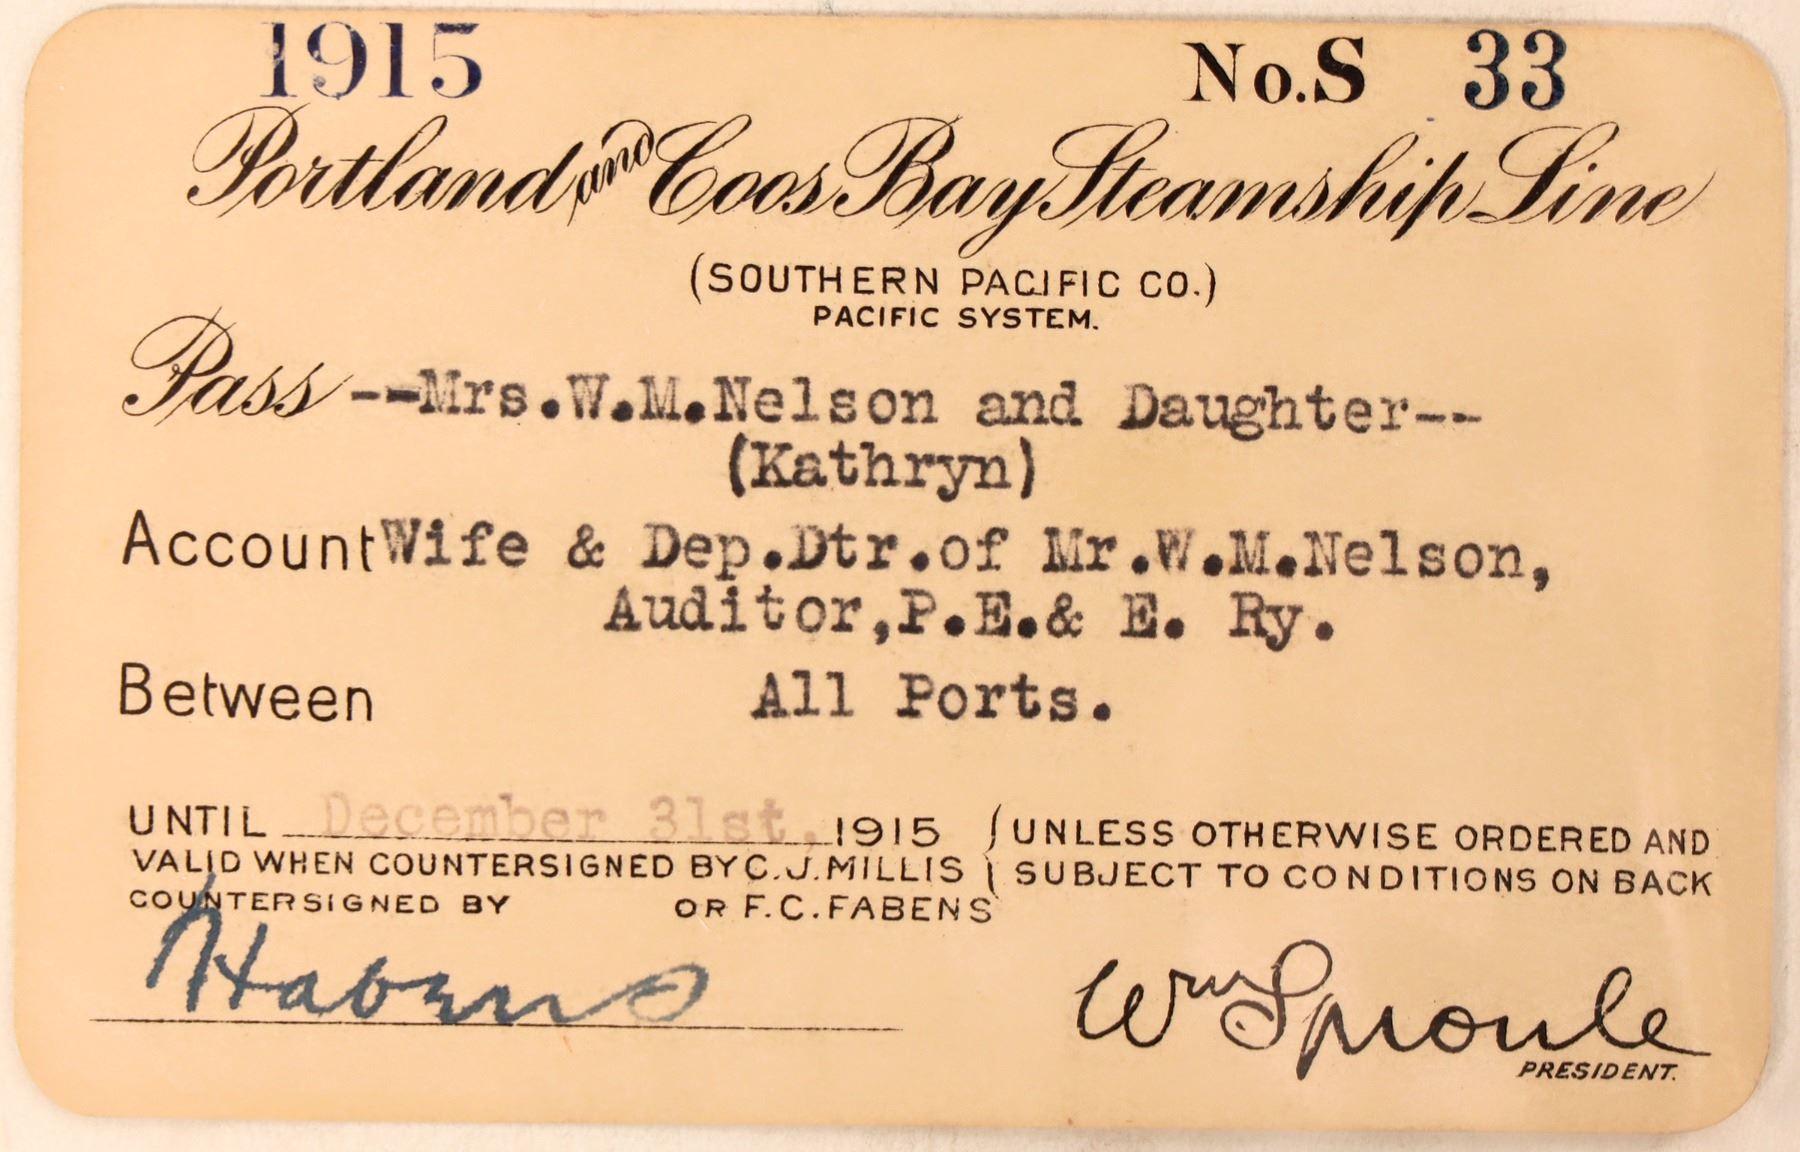 1915 No.S 33
Portland and Coos Bay Steamship Line
(SOUTHERN PACIFIC CO.)
PACIFIC SYSTEM.
Pass --Mrs.W.M.Nelson and Daughter--
(Kathryn)
Account Wife & Dep.Dtr.of Mr.W.M.Nelson,
Auditor,P.E.& E. Ry.
Between All Ports.
UNTIL December 31st, 1915 UNLESS OTHERWISE ORDERED AND
VALID WHEN COUNTERSIGNED BY C.J.MILLIS SUBJECT TO CONDITIONS ON BACK
COUNTERSIGNED BY OR F.C.FABENS
Wm Sproule
PRESIDENT.